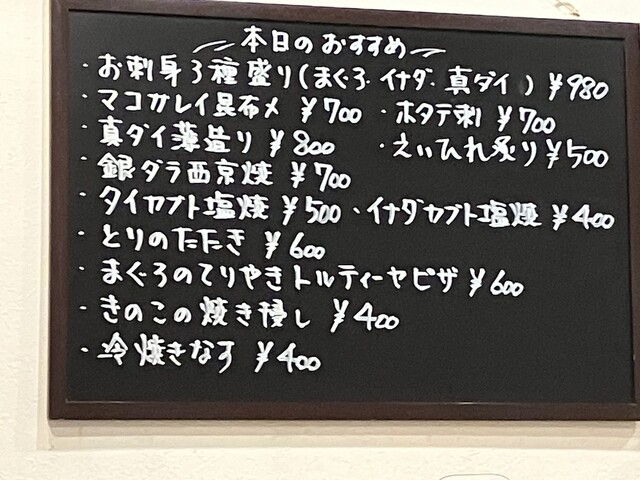 本日のおすすめ
・お刺身3種盛り(まぐろ・イナダ・真ダイ) ¥980
・マコガレイ昆布〆 ¥700 ・ホタテ刺 ¥700
・真ダイ薄造り ¥800 ・えいひれ炙り ¥500
・銀ダラ西京焼 ¥700
・タイカブト塩焼 ¥500 ・イナダカブト塩焼 ¥400
・とりのたたき ¥600
・まぐろのてりやきトルティーヤピザ ¥600
・きのこの焼き浸し ¥400
・冷焼きなす ¥400